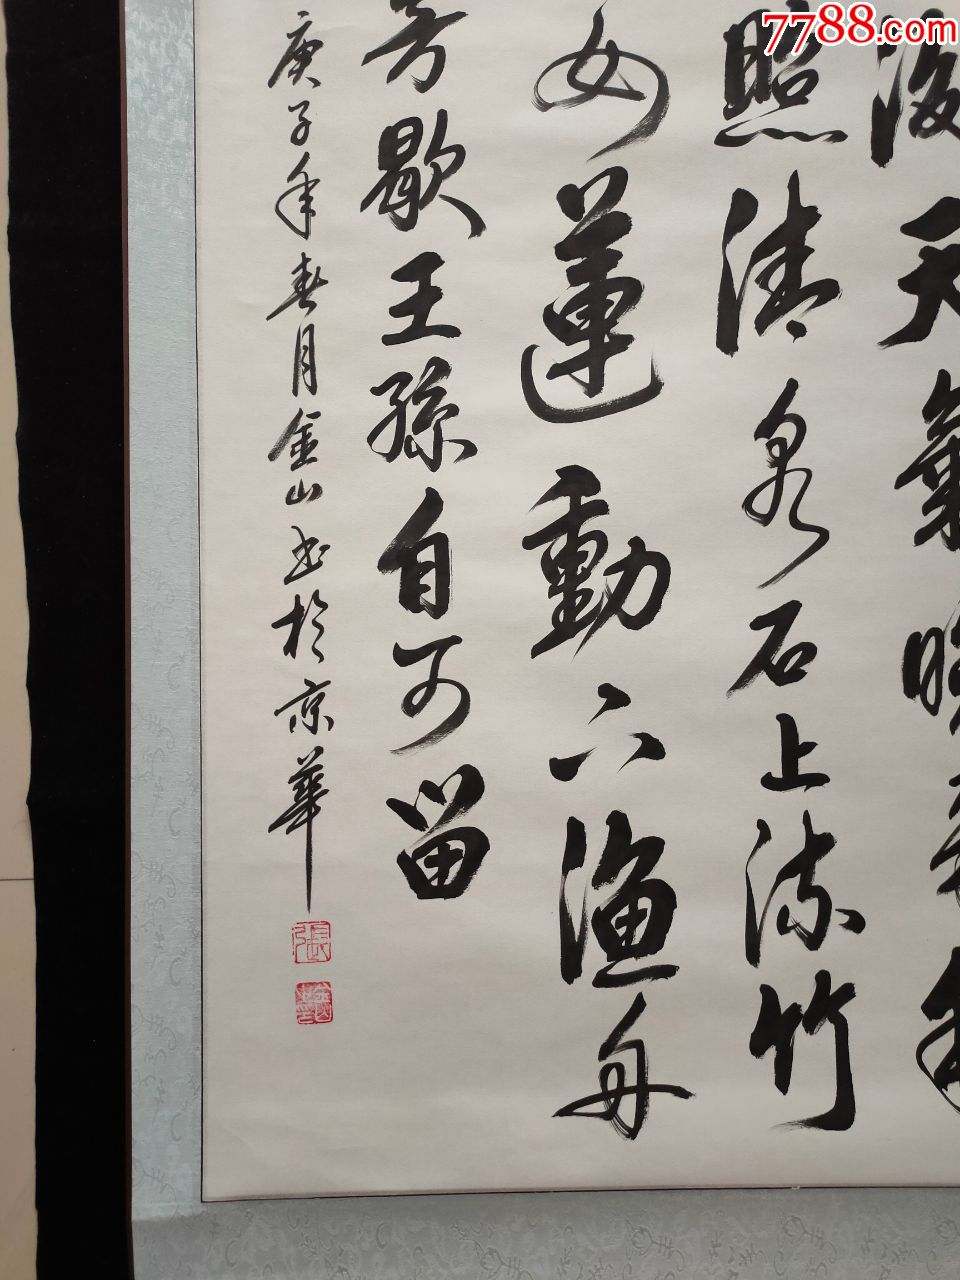 7788.com
後天氣晚来秋
照清泉石上流竹
女蓮動下漁舟
芳歇王孫自可留
庚子年春月金山书於京華
張